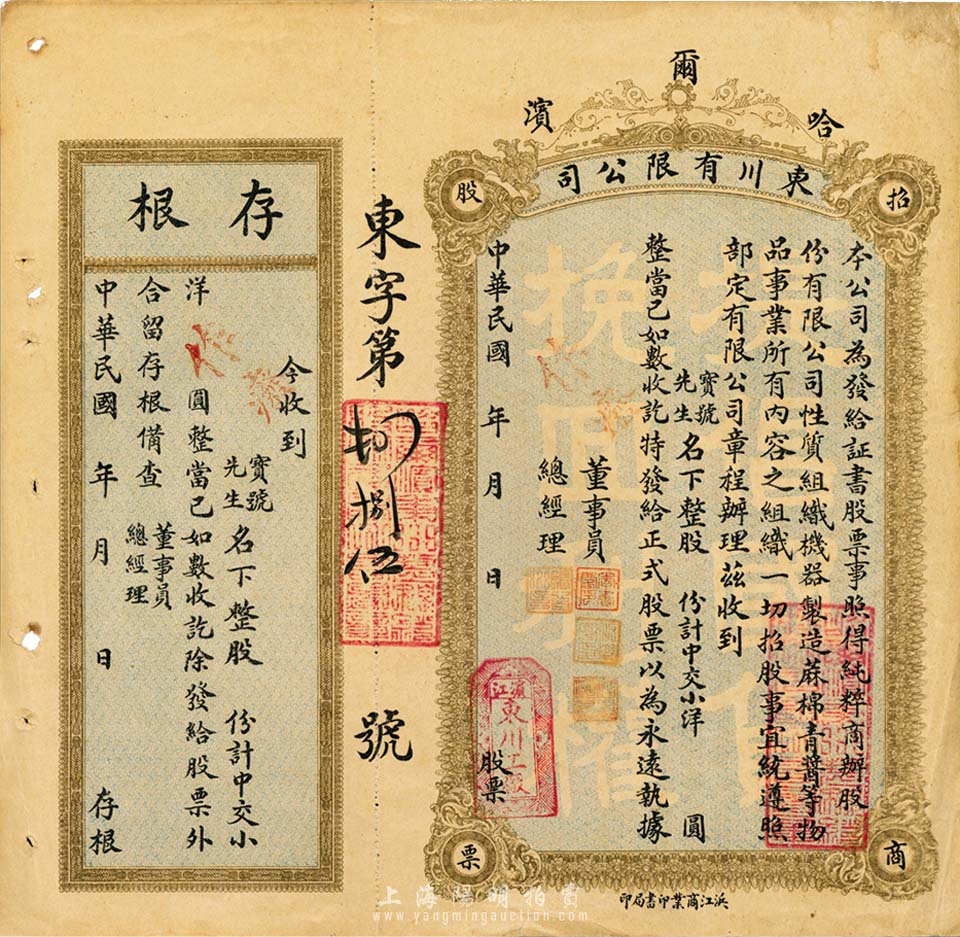 哈爾濱
東川有限公司
招商股票
本公司為發給証書股票事照得純粹商辦股
份有限公司性質組織機器製造蔴棉青醬等物
品事業所有內容之組織一切招股事宜統遵照
部定有限公司章程辦理茲收到
寳號
先生
名下整股 份計中交小洋 圓
整當已如數收訖特發給正式股票以為永遠執據
董事員
總經理
中華民國 年 月 日 股票
濱江
東川工厰
挽回利權
東字第 捌伍 號
存根
今收到
寳號
先生
名下整股 份計中交小
洋 圓整當已如數收訖除發給股票外
合留存根備查
董事員
總經理
中華民國 年 月 日 存根
浜江商業印書局印
上海陽明拍賣
www.yangmingauction.com